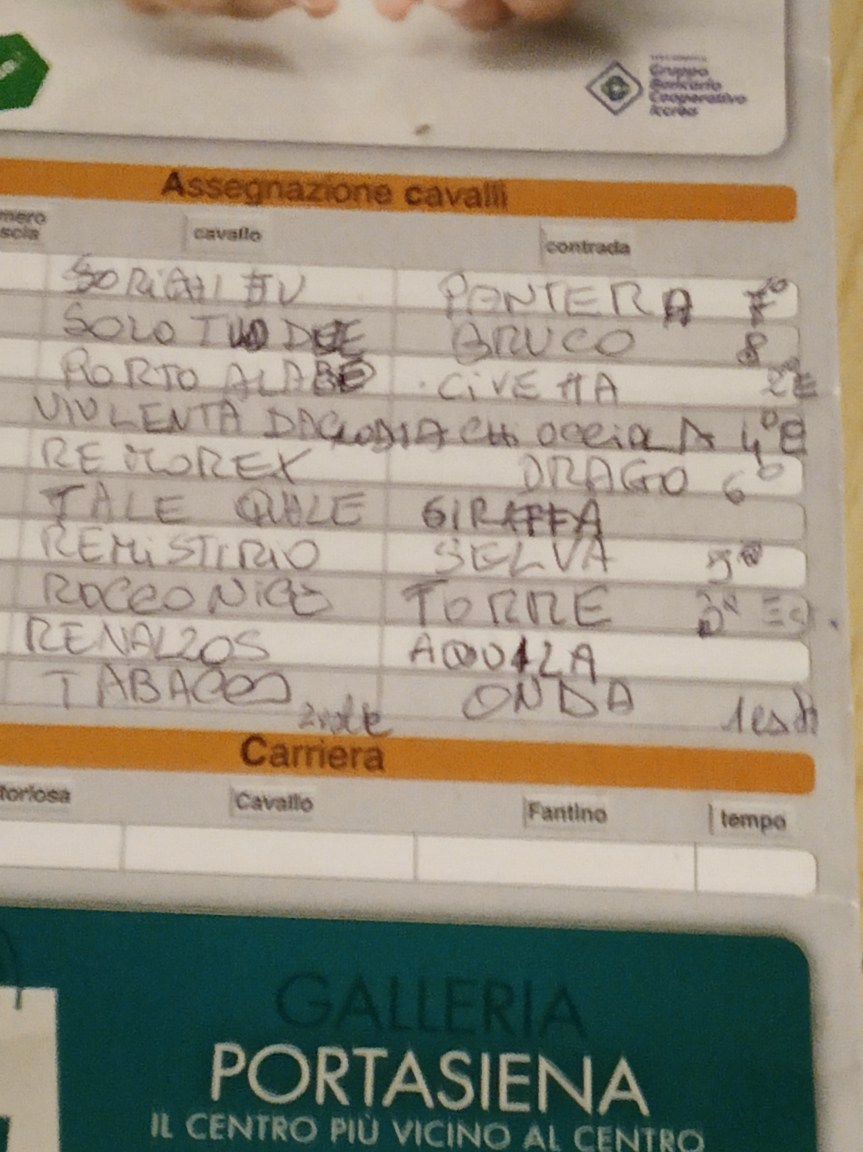 Gruppo
Bancario
Cooperativo
Iccrea
Assegnazione cavalli
mero
scia
cavallo
contrada
PANTERA 7°
SOLO TUO DUE BRUCO 8
PORTO ALABE CIVETTA 2°E
VIOLENTA DA CLODIA CHIOCCIOLA 4°E
REO REX DRAGO 6°
TALE QUALE GIRAFFA
REMISTIRIO SELVA 5°
ROCCO NICE TORRE 3° Es.
RENALZOS AQUILA
TABACCO ONDA
2 volte
Carriera
toriosa
Cavallo
Fantino
tempo
GALLERIA
PORTASIENA
IL CENTRO PIÙ VICINO AL CENTRO